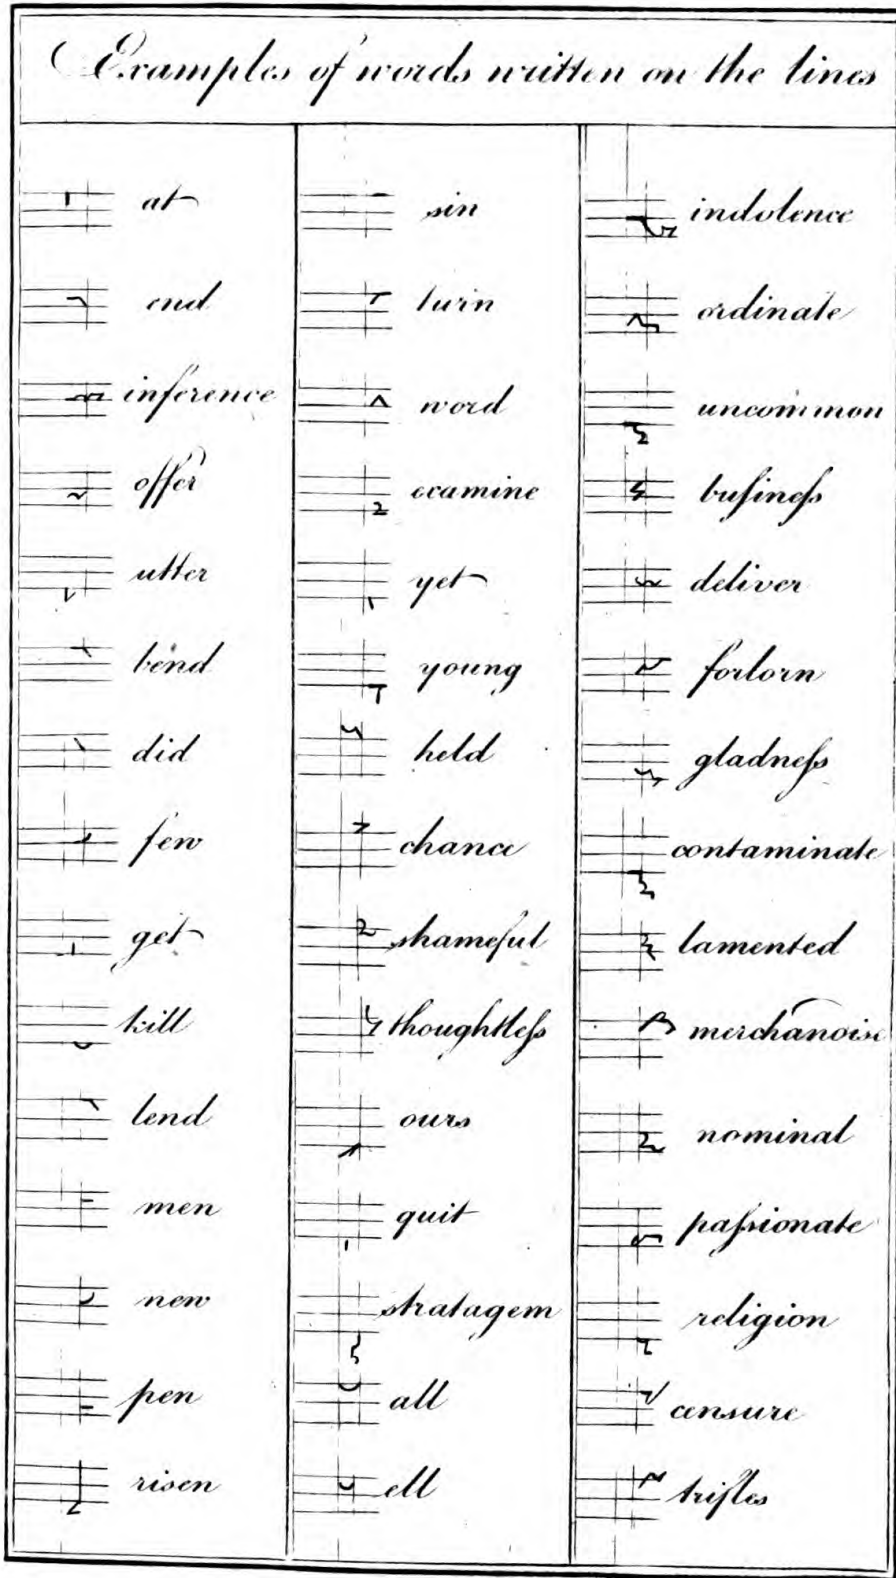 Examples of words written on the lines
at
end
inference
offer
utter
bend
did
few
get
kill
lend
men
new
pen
risen
sin
turn
word
examine
yet
young
held
chance
shameful
thoughtleſs
ours
quit
stratagem
all
ell
indolence
ordinate
uncommon
buſineſs
deliver
forlorn
gladneſs
contaminate
lamented
merchandise
nominal
paſsionate
religion
censure
trifles